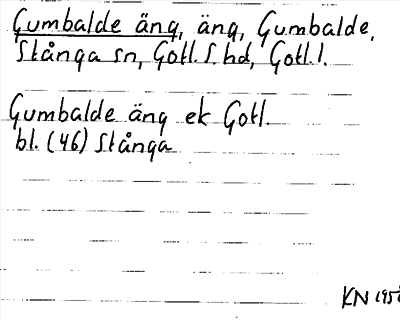 Gumbalde äng, äng, Gumbalde,
Stånga sn, Gotl. S. hd, Gotl. l.
Gumbalde äng ek Gotl.
bl. (46) Stånga
KN